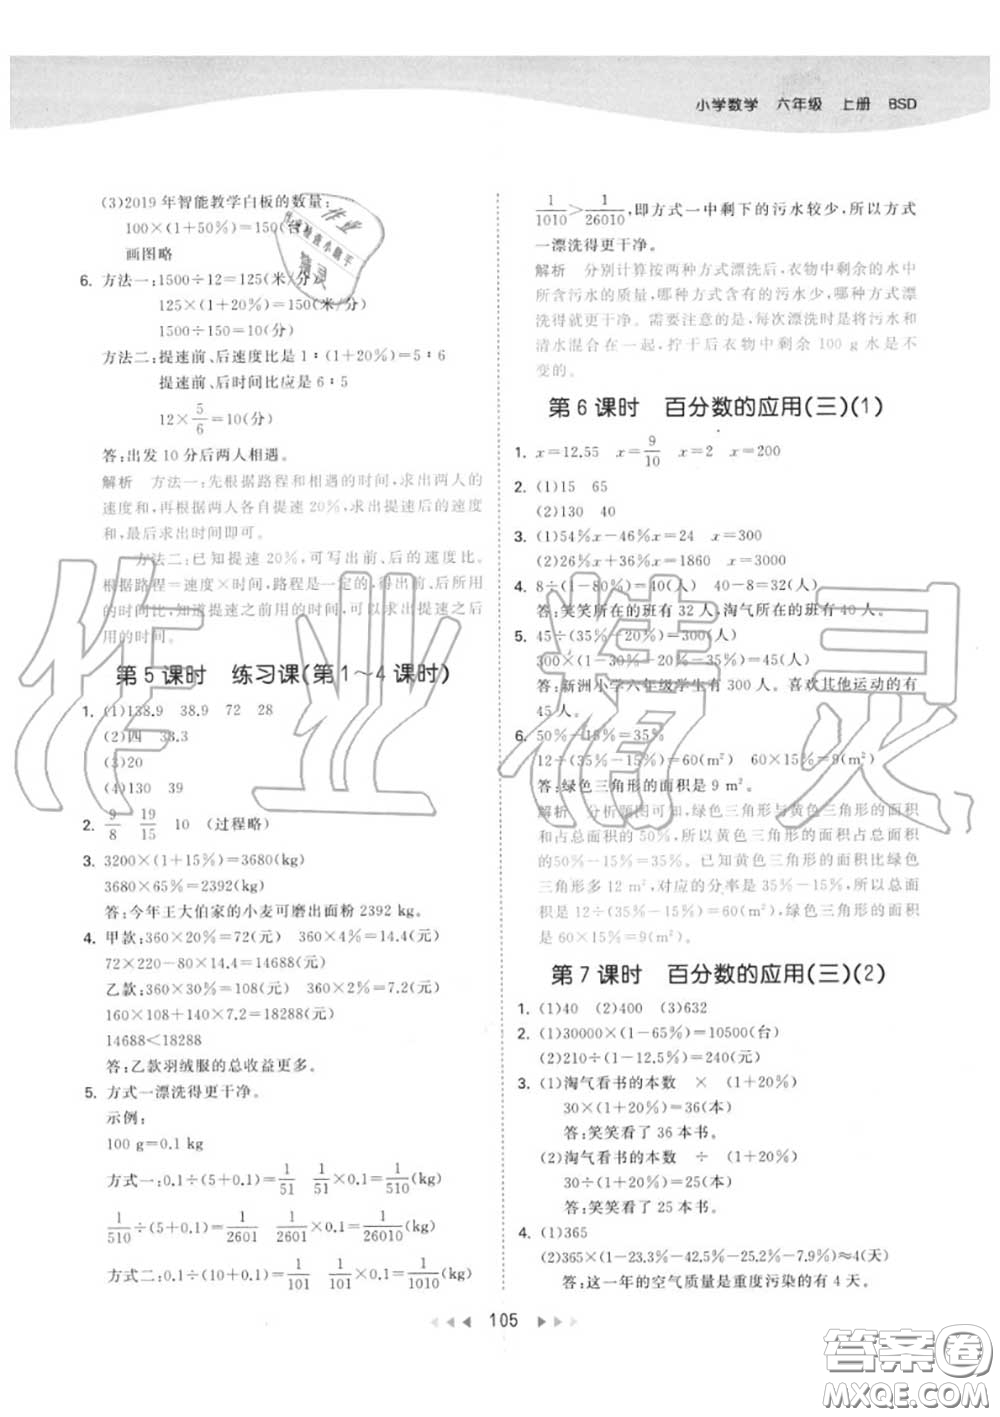 小学数学 六年级 上册 BSD
(3)2019年智能教学白板的数量:
100×(1+50%)=150(台)
画图略
6. 方法一:1500÷12=125(米/分)
125×(1+20%)=150(米/分)
1500÷150=10(分)
方法二:提速前、后速度比是1∶(1+20%)=5∶6
提速前、后时间比应是6∶5
12×5/6=10(分)
答:出发10分后两人相遇。
解析 方法一:先根据路程和相遇的时间,求出两人的
速度和,再根据两人各自提速20%,求出提速后的速度
和,最后求出时间即可。
方法二:已知提速20%,可写出前、后的速度比。
根据路程=速度×时间,路程是一定的,得出前、后所用
的时间比,知道提速之前用的时间,可以求出提速之后
用的时间。
第5课时 练习课(第1~4课时)
1. (1)138.9 38.9 72 28
(2)四 33.3
(3)20
(4)130 39
2. 9/8 19/15 10 (过程略)
3. 3200×(1+15%)=3680(kg)
3680×65%=2392(kg)
答:今年王大伯家的小麦可磨出面粉2392 kg。
4. 甲款:360×20%=72(元) 360×4%=14.4(元)
72×220-80×14.4=14688(元)
乙款:360×30%=108(元) 360×2%=7.2(元)
160×108+140×7.2=18288(元)
14688<18288
答:乙款羽绒服的总收益更多。
5. 方式一漂洗得更干净。
示例:
100 g=0.1 kg
方式一:0.1÷(5+0.1)=1/51 1/51×0.1=1/510(kg)
1/510÷(5+0.1)=1/2601 1/2601×0.1=1/26010(kg)
方式二:0.1÷(10+0.1)=1/101 1/101×0.1=1/1010(kg)
1/1010>1/26010,即方式一中剩下的污水较少,所以方式
一漂洗得更干净。
解析 分别计算按两种方式漂洗后,衣物中剩余的水中
所含污水的质量,哪种方式含有的污水少,哪种方式漂
洗得就更干净。需要注意的是,每次漂洗时是将污水和
清水混合在一起,拧干后衣物中剩余100 g水是不
变的。
第6课时 百分数的应用(三)(1)
1. x=12.55 x=9/10 x=2 x=200
2. (1)15 65
(2)130 40
3. (1)54%x-46%x=24 x=300
(2)26%x+36%x=1860 x=3000
4. 8÷(1-80%)=40(人) 40-8=32(人)
答:笑笑所在的班有32人,淘气所在的班有40人。
5. 45÷(35%-20%)=300(人)
300×(1-30%-20%-35%)=45(人)
答:新洲小学六年级学生有300人。喜欢其他运动的有
45人。
6. 50%-15%=35%
12÷(35%-15%)=60(m²) 60×15%=9(m²)
答:绿色三角形的面积是9 m²。
解析 分析题图可知,绿色三角形与黄色三角形的面积
和占总面积的50%,所以黄色三角形的面积占总面积
的50%-15%=35%。已知黄色三角形的面积比绿色
三角形多12 m²,对应的分率是35%-15%,所以总面
积是12÷(35%-15%)=60(m²),绿色三角形的面积
是60×15%=9(m²)。
第7课时 百分数的应用(三)(2)
1. (1)40 (2)400 (3)632
2. (1)30000×(1-65%)=10500(台)
(2)210÷(1-12.5%)=240(元)
3. (1)淘气看书的本数 × (1+20%)
30×(1+20%)=36(本)
答:笑笑看了36本书。
(2)淘气看书的本数 ÷ (1+20%)
30÷(1+20%)=25(本)
答:笑笑看了25本书。
4. (1)365
(2)365×(1-23.3%-42.5%-25.2%-7.9%)≈4(天)
答:这一年的空气质量是重度污染的有4天。
105
作业精灵
答案圈
MXQE.COM